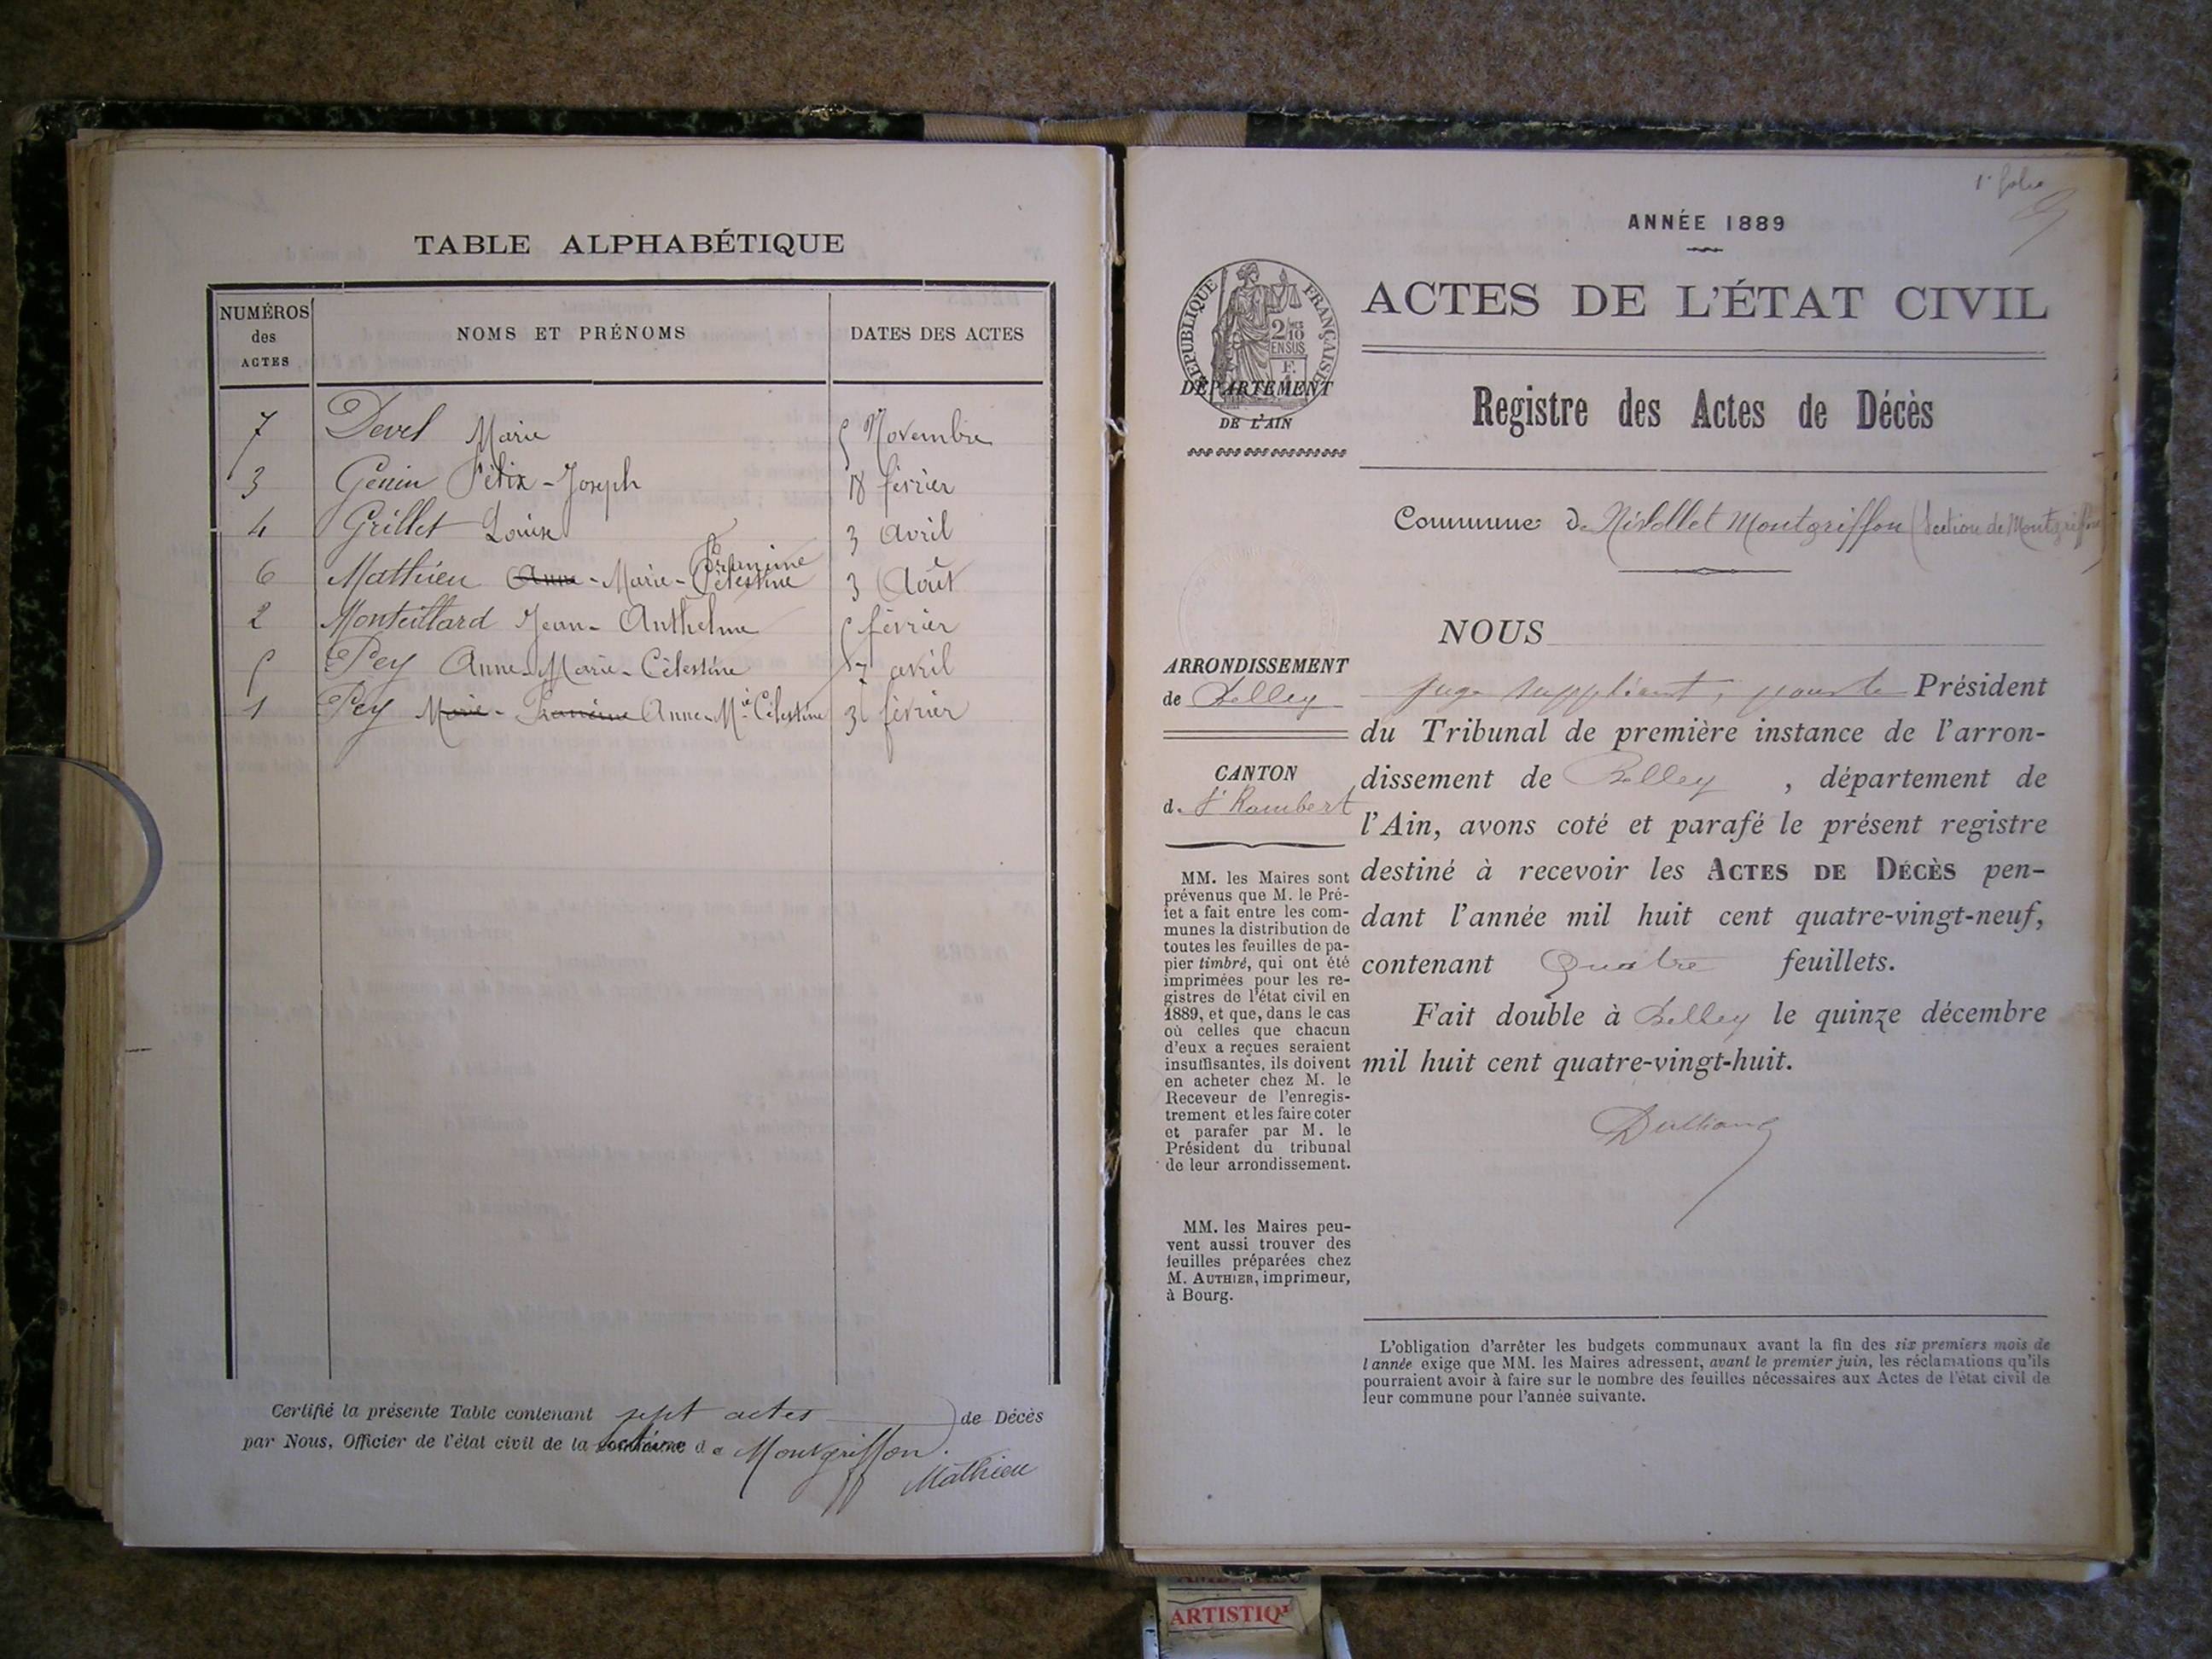 TABLE ALPHABÉTIQUE
NUMÉROS des ACTES
NOMS ET PRÉNOMS
DATES DES ACTES
7 Devel Marie 5 Novembre
3 Genin Félix-Joseph 18 février
4 Grillet Louise 3 avril
Francine
6 Mathieu Anne-Marie-Célestine 3 Août
2 Monteillard Jean-Anthelme 5 février
5 Pey Anne-Marie-Célestine 17 avril
1 Pey Marie-Francine Anne-Mie Célestine 3 février
Certifié la présente Table contenant sept actes de Décès
par Nous, Officier de l'état civil de la section de Montgriffon.
Mathieu
1er folio
ANNÉE 1889
RÉPUBLIQUE FRANÇAISE
2/10 EN SUS
DÉPARTEMENT
DE L'AIN
ACTES DE L'ÉTAT CIVIL
Registre des Actes de Décès
Commune de Nivollet Montgriffon (Section de Montgriffon)
ARRONDISSEMENT
de Belley
CANTON
de St Rambert
MM. les Maires sont
prévenus que M. le Pré-
fet a fait entre les com-
munes la distribution de
toutes les feuilles de pa-
pier timbré, qui ont été
imprimées pour les re-
gistres de l'état civil en
1889, et que, dans le cas
où celles que chacun
d'eux a reçues seraient
insuffisantes, ils doivent
en acheter chez M. le
Receveur de l'enregis-
trement et les faire coter
et parafer par M. le
Président du tribunal
de leur arrondissement.
MM. les Maires peu-
vent aussi trouver des
feuilles préparées chez
M. AUTHIER, imprimeur,
à Bourg.
NOUS
juge suppléant, pour le Président
du Tribunal de première instance de l'arron-
dissement de Belley , département de
l'Ain, avons coté et parafé le présent registre
destiné à recevoir les ACTES DE DÉCÈS pen-
dant l'année mil huit cent quatre-vingt-neuf,
contenant Quatre feuillets.
Fait double à Belley le quinze décembre
mil huit cent quatre-vingt-huit.
L'obligation d'arrêter les budgets communaux avant la fin des six premiers mois de
l'année exige que MM. les Maires adressent, avant le premier juin, les réclamations qu'ils
pourraient avoir à faire sur le nombre des feuilles nécessaires aux Actes de l'état civil de
leur commune pour l'année suivante.
ARTISTIQ